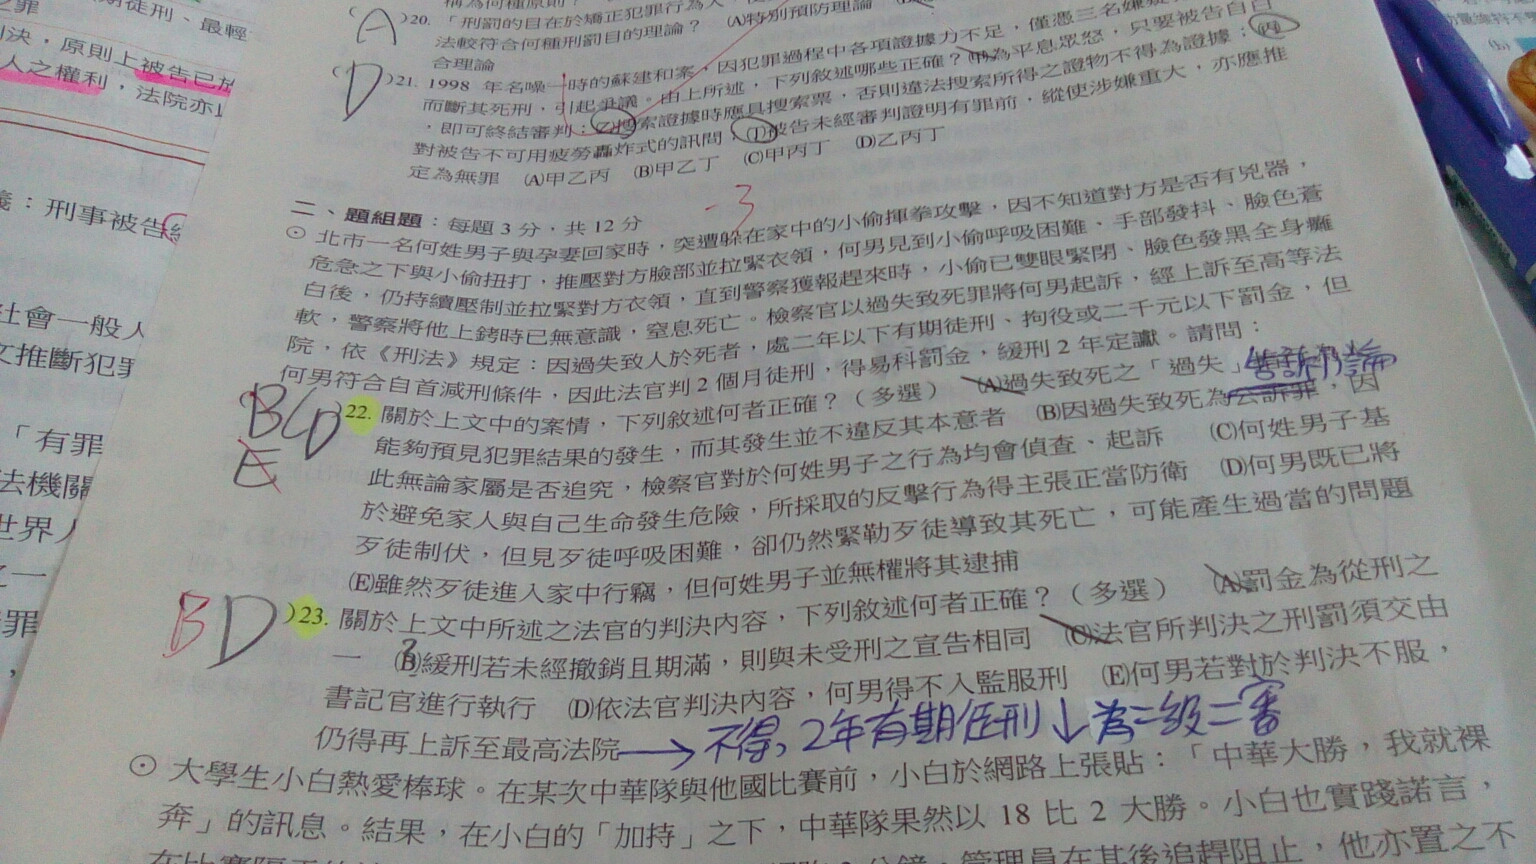 之罪
徒刑、最輕
判決，原則上被告已於
人之權利，法院亦以
義：刑事被告
社會一般人
推斷犯罪
「有罪
法機關
世界人
之一
罪
A
)20. 「刑罰的目在於矯正犯罪行為人，
(A)特別預防理論
法較符合何種刑罰目的理論？
合理論
D
(
)21. 1998 年名噪一時的蘇建和案，因犯罪過程中各項證據力不足，僅憑三名嫌疑
而斷其死刑，引起爭議。由上所述，下列敘述哪些正確？(甲)為平息眾怒，只要被告自白
，即可終結審判；(乙)搜索證據時應具搜索票，否則違法搜索所得之證物不得為證據；(丙)
對被告不可用疲勞轟炸式的訊問；(丁)被告未經審判證明有罪前，縱使涉嫌重大，亦應推
定為無罪 (A)甲乙丙 (B)甲乙丁 (C)甲丙丁 (D)乙丙丁
-3
二、題組題：每題 3 分，共 12 分
⊙ 北市一名何姓男子與孕妻回家時，突遭躲在家中的小偷揮拳攻擊，因不知道對方是否有兇器，
危急之下與小偷扭打，推壓對方臉部並拉緊衣領，何男見到小偷呼吸困難、手部發抖、臉色蒼
白後，仍持續壓制並拉緊對方衣領，直到警察獲報趕來時，小偷已雙眼緊閉、臉色發黑全身癱
軟，警察將他上銬時已無意識，窒息死亡。檢察官以過失致死罪將何男起訴，經上訴至高等法
院，依《刑法》規定：因過失致人於死者，處二年以下有期徒刑、拘役或二千元以下罰金，但
何男符合自首減刑條件，因此法官判 2 個月徒刑，得易科罰金，緩刑 2 年定讞。請問：
BCD
E
22. 關於上文中的案情，下列敘述何者正確？（多選） (A)過失致死之「過失」
告訴乃論
能夠預見犯罪結果的發生，而其發生並不違反其本意者 (B)因過失致死為公訴罪，因
此無論家屬是否追究，檢察官對於何姓男子之行為均會偵查、起訴 (C)何姓男子基
於避免家人與自己生命發生危險，所採取的反擊行為得主張正當防衛 (D)何男既已將
歹徒制伏，但見歹徒呼吸困難，卻仍然緊勒歹徒導致其死亡，可能產生過當的問題
(E)雖然歹徒進入家中行竊，但何姓男子並無權將其逮捕
BD
)23. 關於上文中所述之法官的判決內容，下列敘述何者正確？（多選） (A)罰金為從刑之
一 (B)緩刑若未經撤銷且期滿，則與未受刑之宣告相同 (C)法官所判決之刑罰須交由
書記官進行執行 (D)依法官判決內容，何男得不入監服刑 (E)何男若對於判決不服，
仍得再上訴至最高法院 → 不得，2年有期徒刑↓為二級二審
⊙ 大學生小白熱愛棒球。在某次中華隊與他國比賽前，小白於網路上張貼：「中華大勝，我就裸
奔」的訊息。結果，在小白的「加持」之下，中華隊果然以 18 比 2 大勝。小白也實踐諾言，
管理員在其後追趕阻止，他亦置之不